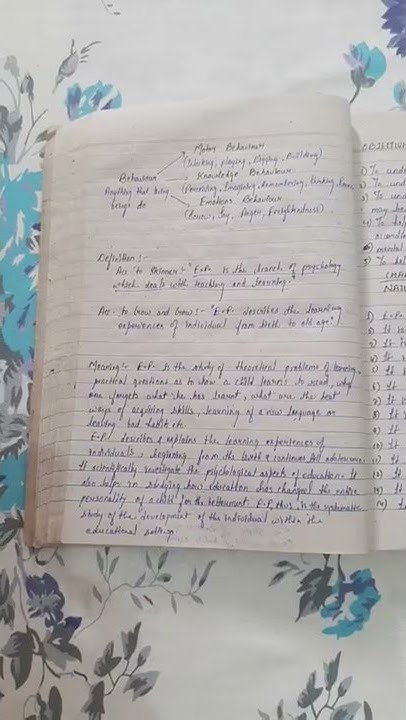 Motory Behaviour
(Working, playing, Digging, Building)
Behaviour
Knowledge Behaviour
Anything that living
(Perceiving, Imagining, Remembering, thinking,
beings do
Emotions Behaviour
(Sorrow, Joy, Anger, Frightendness).
Definition :-
Acc. to Skinner :- "E.P. is the branch of psychology
which deals with teaching and learning."
Acc. to Crow and Crow :- "E.P. describes the learning
experiences of individual from birth to old age."
Meaning :- E.P. is the study of theoretical problems of learning,
practical questions as to how a child learns to read, why
one forgets what she has learnt, what are the best
ways of acquiring skills, learning of a new language or
leaving bad habits etc.
E.P. describes & explains the learning experiences of
individuals, beginning from the birth & continues till adolescence. It
scientifically investigate the psychological aspects of education. It
also helps in studying how education has changed the entire
personality of a child for the betterment. E.P, thus, is the systematic
study of the development of the individual within the
educational setting.
OBJECTIV
1) To unde
2) To und
3) To und
may be
4) To help
mental
5) To hel
CHA
NATU
1) E.P.